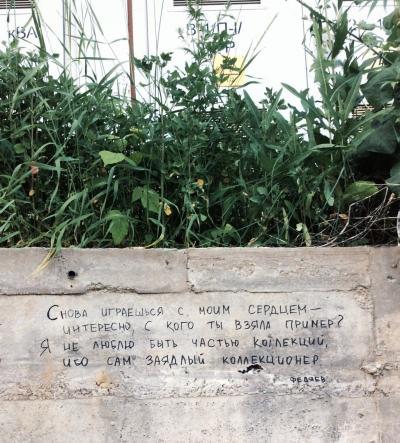 КВА
Снова играешься с моим сердцем —
интересно, с кого ты взяла пример?
Я не люблю быть частью коллекций,
ибо сам заядлый коллекционер
Федяев